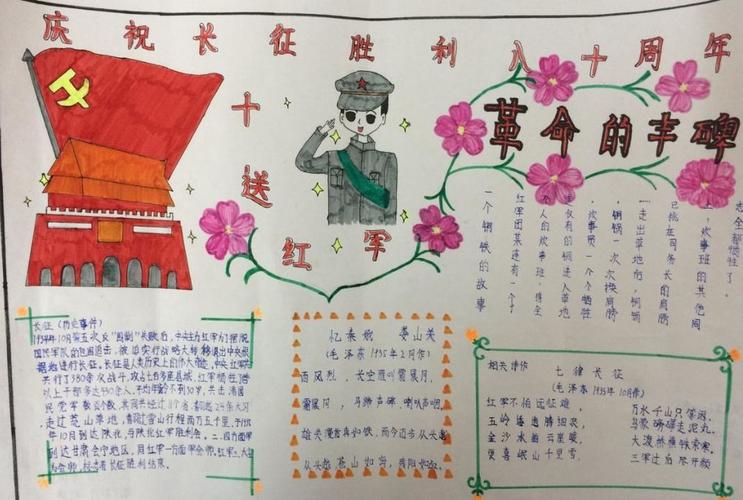 庆祝长征胜利八十周年
十送红军
革命的丰碑
一个铜锅的故事
红军团某连有一个
人的炊事班
走出草地后，铜锅
已挑在司务长的肩膀
上，炊事班的其他同
志全都牺牲了。
长征（历史事件）
1934年10月第五次反"围剿"失败后，中央主力红军为摆脱
国民军队的包围追击，被迫实行战略大转移，退出中央根
据地进行长征。长征是人类历史上的伟大奇迹，中央红军共
共行了380余次战斗，攻占七百多座县城，红军牺牲了营
以上干部多达430余人，平均年龄不到30岁，共击溃国
民党军数百个团，其间共经过11个省，翻越18条大山
走过草地，翻过雪山，行程两万五千里，于1935
年10月到达陕北，与陕北红军胜利会师。二、四方面军
到达甘肃会宁地区，同红一方面军会师，红军三大主
力会师，标志着长征胜利结束。
忆秦娥 娄山关
（毛泽东1935年2月作）
西风烈，长空雁叫霜晨月，
霜晨月，马蹄声碎，喇叭声咽。
雄关漫道真如铁，而今迈步从头越
从头越，苍山如海，残阳如血。
相关诗作
七律 长征
（毛泽东1935年10月作）
红军不怕远征难，
万水千山只等闲。
五岭逶迤腾细浪，
乌蒙磅礴走泥丸。
金沙水拍云崖暖，
大渡桥横铁索寒。
更喜岷山千里雪，
三军过后尽开颜